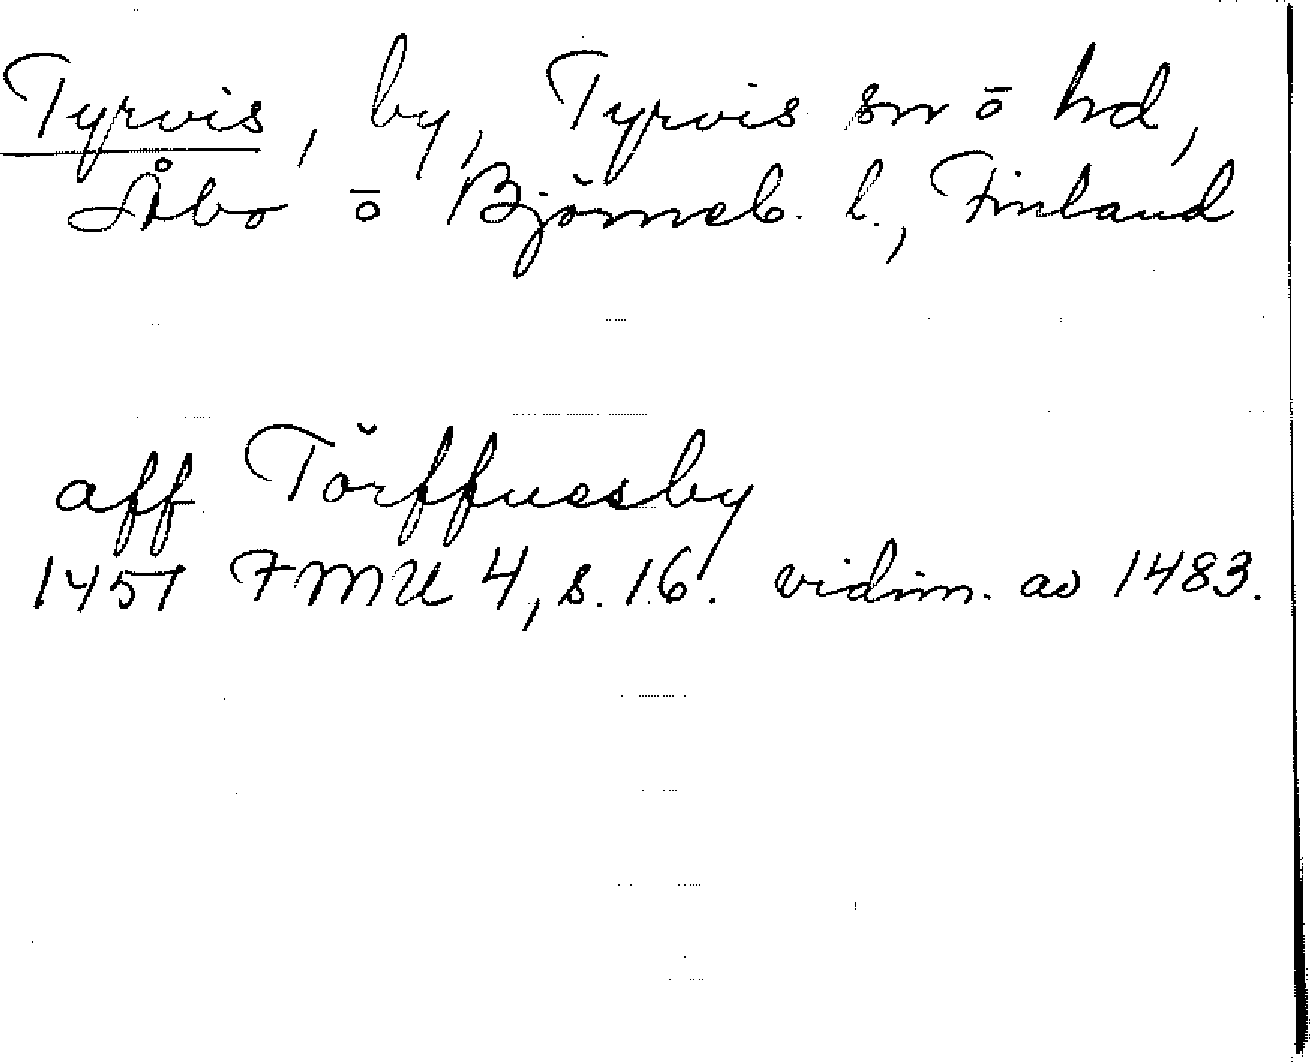 Tyrvis, by, Tyrvis sn ō hd,
Åbo ō Björneb. l., Finland
aff Törffuesby
1451 FMU 4, s. 16. vidim. av 1483.